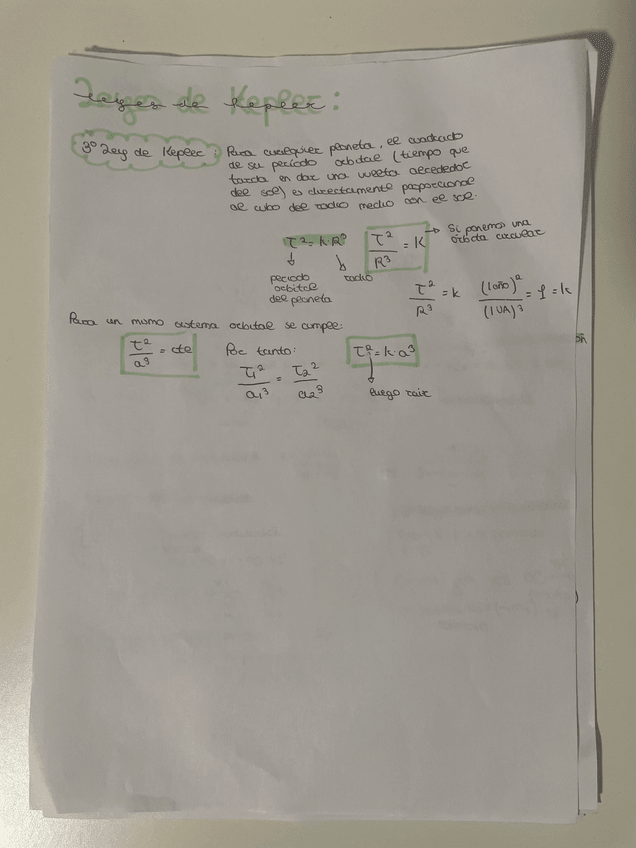 Leyes de Kepler:
3º Ley de Kepler: Para cualquier planeta, el cuadrado
de su período orbital (tiempo que
tarda en dar una vuelta alrededor
del sol) es directamente proporcional
al cubo del radio medio con el sol.
T² = k·R³
T²/R³ = K → Si ponemos una
órbita circular
periodo
orbital
del planeta
radio
T²/R³ = k (1año)²/(1UA)³ = 1 = k
Para un mismo sistema orbital se cumple:
T²/a³ = cte Por tanto: T² = k·a³
T₁²/a₁³ = T₂²/a₂³
luego raíz